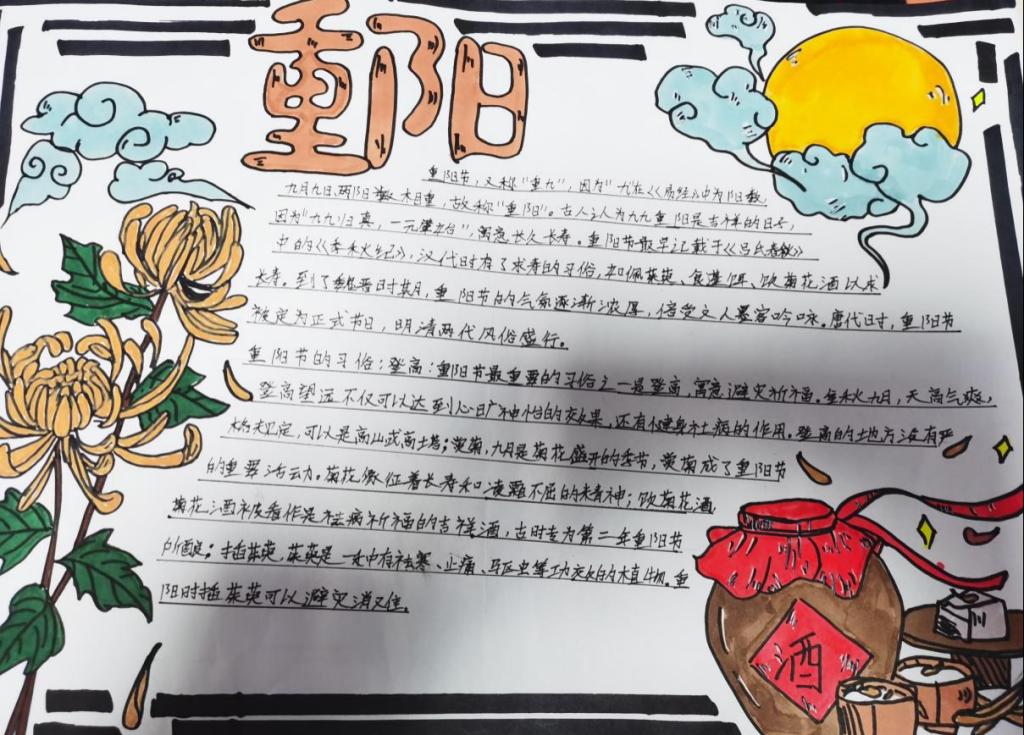 重阳
重阳节，又称“重九”，因为“九”在《易经》中为阳数，
九月九日，两阳数相重，故称“重阳”。古人认为九九重阳是吉祥的日子，
因为“九九”归真，一元肇始”，寓意长久长寿。重阳节最早记载于《吕氏春秋》
中的《季秋纪》，汉代时有了求寿的习俗，如佩茱萸、食蓬饵、饮菊花酒以求
长寿。到了魏晋时期，重阳节的气氛逐渐浓厚，倍受文人墨客吟咏。唐代时，重阳节
被定为正式节日，明清两代风俗盛行。
重阳节的习俗：登高：重阳节最重要的习俗之一是登高，寓意避灾祈福。金秋九月，天高气爽，
登高望远不仅可以达到心旷神怡的效果，还有健身祛病的作用。登高的地方没有严
格规定，可以是高山或高塔；赏菊，九月是菊花盛开的季节，赏菊成了重阳节
的重要活动。菊花象征着长寿和凌霜不屈的精神；饮菊花酒
菊花酒被看作是祛病祈福的吉祥酒，古时专为第二年重阳节
所酿；插茱萸，茱萸是一种有祛寒、止痛、驱虫等功效的植物。重
阳时插茱萸可以避灾消
酒